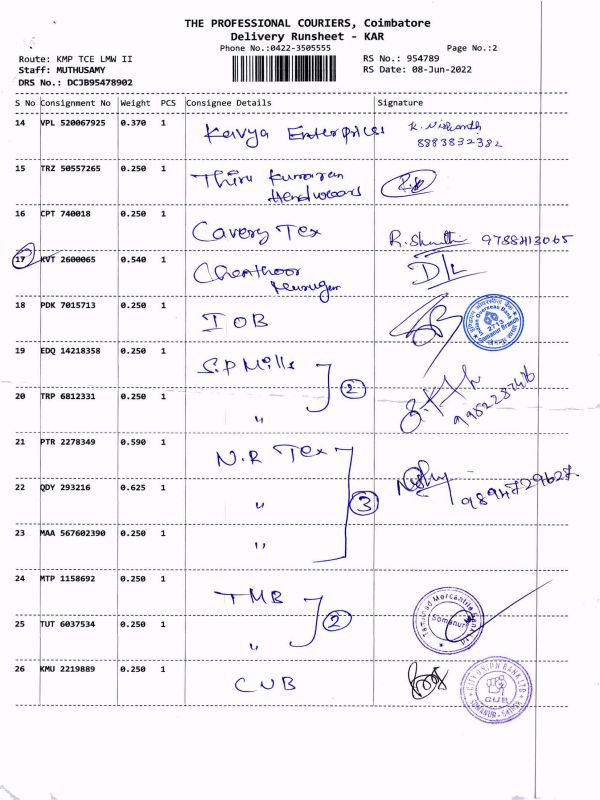 THE PROFESSIONAL COURIERS, Coimbatore
Delivery Runsheet - KAR
Phone No.:0422-3505555 Page No.:2
Route: KMP TCE LMW II RS No.: 954789
Staff: MUTHUSAMY RS Date: 08-Jun-2022
DRS No.: DCJB95478902
S No Consignment No Weight PCS Consignee Details Signature
14 VPL 520067925 0.370 1 Kavya Enterprices K. Nishanth
8883832382
15 TRZ 50557265 0.250 1 Thiru Kumaran
16 CPT 740018 0.250 1 Cavery Tex R. Shanthi
17 KVT 2600065 0.540 1 D/L
18 PDK 7015713 0.250 1 IOB Indian Overseas Bank 2713 Somanur Branch
19 EDQ 14218358 0.250 1 S.P Mills 2
20 TRP 6812331 0.250 1 "
21 PTR 2278349 0.590 1 N.R Tex
22 QDY 293216 0.625 1 " 3 9894729627
23 MAA 567602390 0.250 1 "
24 MTP 1158692 0.250 1 TMB Tamilnad Mercantile Bank Ltd Somanur
25 TUT 6037534 0.250 1 " 2
26 KMU 2219889 0.250 1 CUB CITY UNION BANK LTD CUB